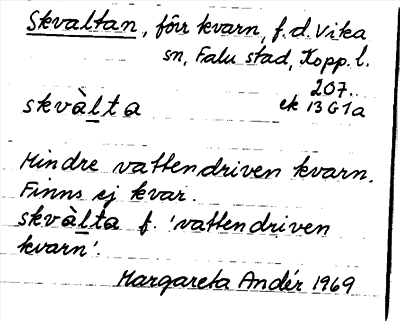 Skvaltan, förr kvarn, f.d. Vika
sn, Falu stad, Kopp. l.
207.
skvàlta ek 13 G 1a
Mindre vattendriven kvarn.
Finns ej kvar.
skvàlta f. 'vattendriven
kvarn'.
Margareta Andér 1969